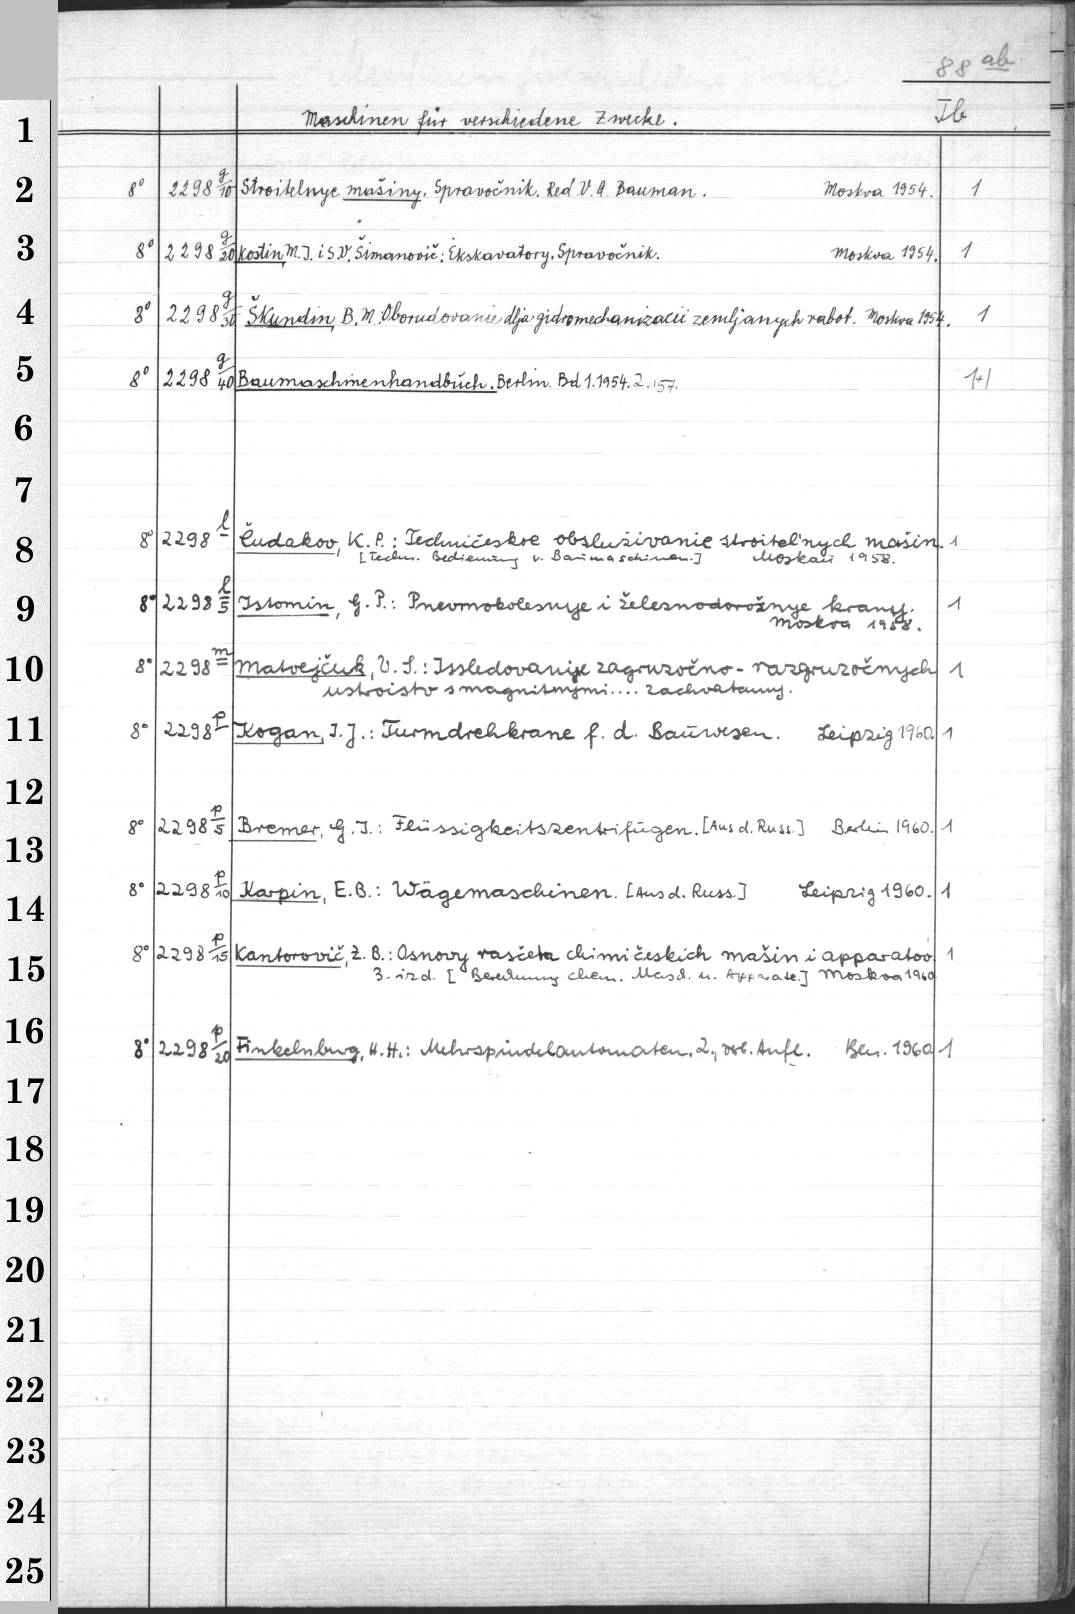 88 ab
Ib
Maschinen für verschiedene Zwecke.
8° 2298 g/10 Stroitelnye mašiny. Spravočnik. Red V. A. Bauman. Moskva 1954. 1
8° 2298 g/20 Kostin, M. J. i S. V. Šimanovič: Ėkskavatory. Spravočnik. Moskva 1954. 1
8° 2298 g/30 Škundin, B. M. Oborudovanie dlja gidromechanizacii zemljanych rabot. Moskva 1954. 1
8° 2298 g/40 Baumaschinenhandbuch. Berlin. Bd 1. 1954. 2. 157. 1+1
8° 2298 l Čudakov, K. P.: Techničeskoe obsluživanie stroitel'nych mašin. 1
[Techn. Bedienung v. Baumaschinen.] Moskau 1958.
8° 2298 l/5 Istomin, G. P.: Pnevmokolesnye i železnodorožnye krany. 1
Moskva 1958.
8° 2298 m Matvejčuk, V. S.: Issledovanije zagruzočno-razgruzočnych 1
ustroistv s magnitnymi.... zachvatamy.
8° 2298 p Kogan, I. J.: Turmdrehkrane f. d. Bauwesen. Leipzig 1960. 1
8° 2298 p/5 Bremer, G. I.: Flüssigkeitszentrifugen. [Aus d. Russ.] Berlin 1960. 1
8° 2298 p/10 Karpin, E. B.: Wägemaschinen. [Aus d. Russ.] Leipzig 1960. 1
8° 2298 p/15 Kantorovič, Z. B.: Osnovy rasčeta chimičeskich mašin i apparatov 1
3. izd. [Berechnung chem. Masch. u. Apparate.] Moskva 1960
8° 2298 p/20 Finkelnburg, H. H.: Mehrspindelautomaten. 2., vrb. Aufl. Ber. 1960 1
1
2
3
4
5
6
7
8
9
10
11
12
13
14
15
16
17
18
19
20
21
22
23
24
25